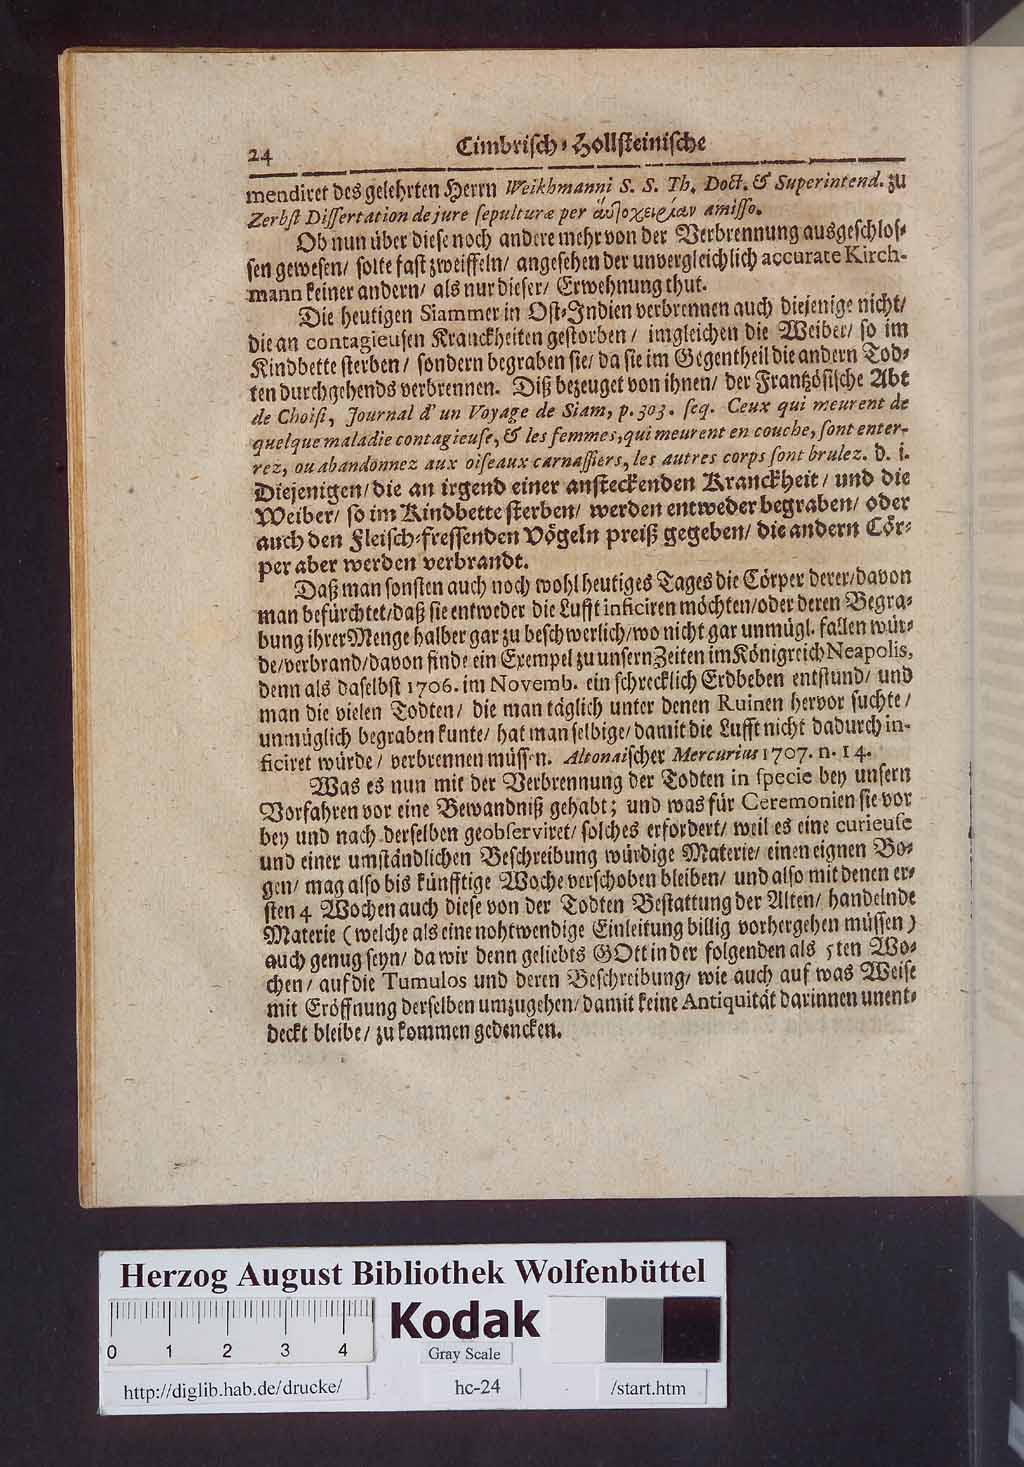 24 Cimbrisch-Hollsteinische
mendiret des gelehrten Herrn Weikhmanni S. S. Th. Doct. & Superintend. zu
Zerbst Dissertation de jure sepulturæ per ἀυτοχειρίαν amisso.
Ob nun über diese noch andere mehr von der Verbrennung ausgeschlos-
sen gewesen/ solte fast zweiffeln/ angesehen der unvergleichlich accurate Kirch-
mann keiner andern/ als nur dieser/ Erwehnung thut.
Die heutigen Siammer in Ost-Indien verbrennen auch diejenige nicht/
die an contagieusen Kranckheiten gestorben/ imgleichen die Weiber/ so im
Kindbette sterben/ sondern begraben sie/ da sie im Gegentheil die andern Tod-
ten durchgehends verbrennen. Diß bezeuget von ihnen/ der Frantzösische Abt
de Choisi, Journal d'un Voyage de Siam, p. 303. seq. Ceux qui meurent de
quelque maladie contagieuse, & les femmes, qui meurent en couche, sont enter-
rez, ou abandonnez aux oiseaux carnassiers, les autres corps sont brulez. d. i.
Diejenigen/ die an irgend einer ansteckenden Kranckheit/ und die
Weiber/ so im Kindbette sterben/ werden entweder begraben/ oder
auch den Fleisch-fressenden Vögeln preiß gegeben/ die andern Cör-
per aber werden verbrandt.
Daß man sonsten auch noch wohl heutiges Tages die Cörper derer/ davon
man befürchtet/ daß sie entweder die Lufft inficiren möchten/ oder deren Begra-
bung ihrer Menge halber gar zu beschwerlich/ wo nicht gar unmügl. fallen wür-
de/ verbrand/ davon finde ein Exempel zu unsern Zeiten im Königreich Neapolis,
denn als daselbst 1706. im Novemb. ein schrecklich Erdbeben entstund/ und
man die vielen Todten/ die man täglich unter denen Ruinen hervor suchte/
unmüglich begraben kunte/ hat man selbige/ damit die Lufft nicht dadurch in-
ficiret würde/ verbrennen müssen. Altonaischer Mercurius 1707. n. 14.
Was es nun mit der Verbrennung der Todten in specie bey unsern
Vorfahren vor eine Bewandniß gehabt; und was für Ceremonien sie vor
bey und nach derselben geobserviret/ solches erfordert/ weil es eine curieuse
und einer umständlichen Beschreibung würdige Materie/ einen eignen Bo-
gen/ mag also bis künfftige Woche verschoben bleiben/ und also mit denen er-
sten 4 Wochen auch diese von der Todten Bestattung der Alten/ handelnde
Materie (welche als eine nohtwendige Einleitung billig vorhergehen müssen)
auch genug seyn/ da wir denn geliebts GOtt in der folgenden als 5ten Wo-
chen/ auf die Tumulos und deren Beschreibung/ wie auch auf was Weise
mit Eröffnung derselben umzugehen/ damit keine Antiquität darinnen unent-
deckt bleibe/ zu kommen gedencken.
Herzog August Bibliothek Wolfenbüttel
Kodak
0 1 2 3 4
Gray Scale
http://diglib.hab.de/drucke/ hc-24 /start.htm